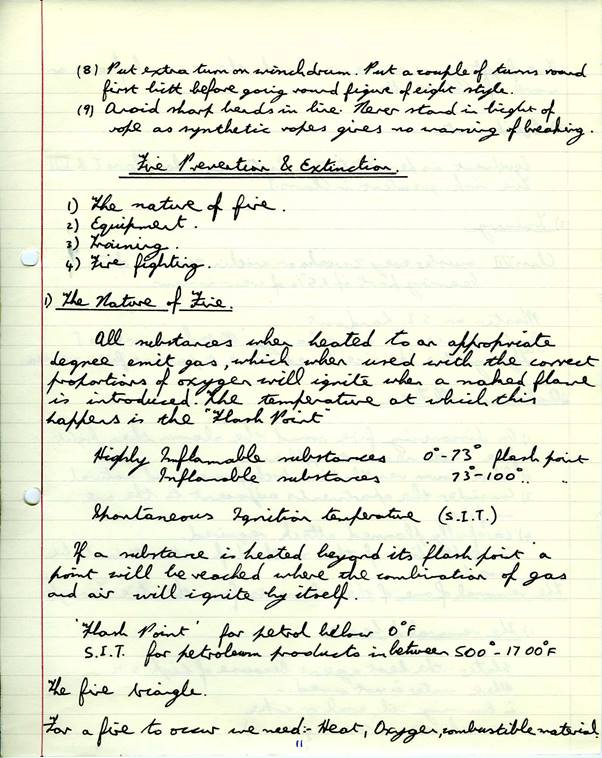 (8) Put extra turn on winch drum. Put a couple of turns round
first bitt before going round figure of eight style.
(9) Avoid sharp bends in line. Never stand in bight of
rope as synthetic ropes gives no warning of breaking.
Fire Prevention & Extinction.
1) The nature of fire.
2) Equipment.
3) Training.
4) Fire fighting.
1) The Nature of Fire.
All substances when heated to an appropriate
degree emit gas, which when used with the correct
proportions of oxygen will ignite when a naked flame
is introduced. The temperature at which this
happens is the "Flash Point"
Highly Inflamable substances 0°-73° flash point
Inflamable substances 73°-100° " "
Spontaneous Ignition temperature (S.I.T.)
If a substance is heated beyond its 'flash point' a
point will be reached where the combination of gas
and air will ignite by itself.
'Flash Point' for petrol below 0°F
S.I.T. for petroleum products in between 500°-1700°F
The fire triangle.
For a fire to occur we need:- Heat, Oxygen, combustible material.
11